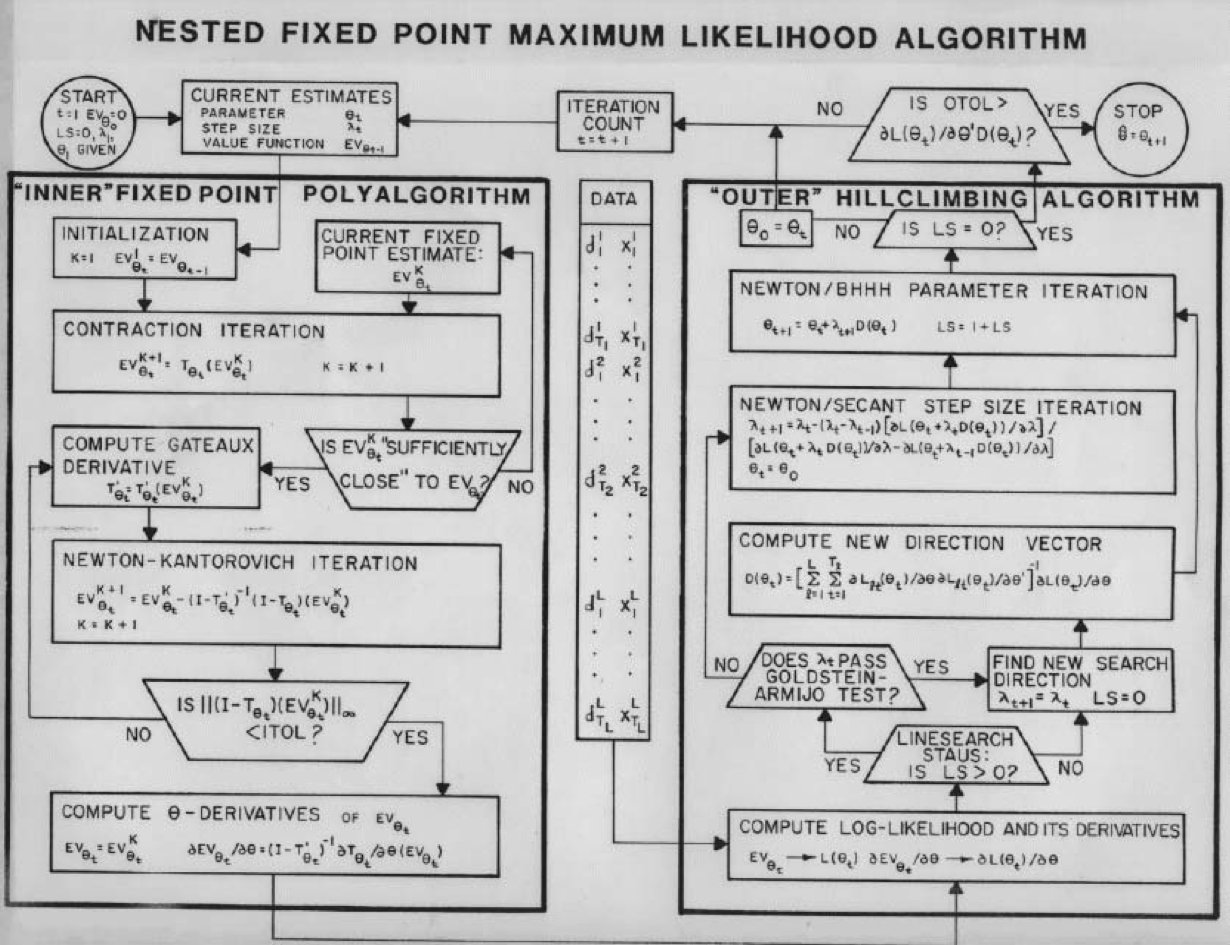 NESTED FIXED POINT MAXIMUM LIKELIHOOD ALGORITHM
START
t=1 EV_θ₀=0
LS=0, λ₁,
θ₁ GIVEN
CURRENT ESTIMATES
PARAMETER θ_t
STEP SIZE λ_t
VALUE FUNCTION EV_θt-1
ITERATION
COUNT
t=t+1
NO
IS OTOL>
∂L(θ_t)/∂θ'D(θ_t)?
YES
STOP
θ̂=θ_t+1
"INNER" FIXED POINT POLYALGORITHM
INITIALIZATION
K=1 EV¹_θt=EV_θt-1
CURRENT FIXED
POINT ESTIMATE:
EV^K_θt
CONTRACTION ITERATION
EV^K+1_θt = T_θt(EV^K_θt) K=K+1
COMPUTE GATEAUX
DERIVATIVE
T'_θt=T'_θt(EV^K_θt)
YES
IS EV^K_θt "SUFFICIENTLY
CLOSE" TO EV_θt?
NO
NEWTON-KANTOROVICH ITERATION
EV^K+1_θt=EV^K_θt-(I-T'_θt)^-1(I-T_θt)(EV^K_θt)
K=K+1
IS ||(I-T_θt)(EV^K_θt)||_∞
<ITOL?
NO
YES
COMPUTE θ-DERIVATIVES OF EV_θt
EV_θt=EV^K_θt ∂EV_θt/∂θ=(I-T'_θt)^-1∂T_θt/∂θ(EV_θt)
DATA
d¹_1 x¹_1
. .
. .
. .
d¹_T₁ x¹_T₁
d²_1 x²_1
. .
. .
. .
d²_T₂ x²_T₂
. .
. .
. .
d^L_1 x^L_1
. .
. .
. .
d^L_T_L x^L_T_L
"OUTER" HILLCLIMBING ALGORITHM
θ₀=θ_t
NO
IS LS=0?
YES
NEWTON/BHHH PARAMETER ITERATION
θ_t+1=θ_t+λ_t+1D(θ_t) LS=1+LS
NEWTON/SECANT STEP SIZE ITERATION
λ_t+1=λ_t-(λ_t-λ_t-1)[∂L(θ_t+λ_tD(θ_t))/∂λ]/
[∂L(θ_t+λ_tD(θ_t))/∂λ-∂L(θ_t+λ_t-1D(θ_t))/∂λ]
θ_t=θ₀
COMPUTE NEW DIRECTION VECTOR
D(θ_t)=[Σ^L_ℓ=1 Σ^T_ℓ_t=1 ∂L_ℓt(θ_t)/∂θ∂L_ℓt(θ_t)/∂θ']^-1∂L(θ_t)/∂θ
NO
DOES λt PASS
GOLDSTEIN-
ARMIJO TEST?
YES
FIND NEW SEARCH
DIRECTION
λ_t+1=λ_t LS=0
YES
LINESEARCH
STAUS:
IS LS>0?
NO
COMPUTE LOG-LIKELIHOOD AND ITS DERIVATIVES
EV_θt → L(θ_t) ∂EV_θt/∂θ → ∂L(θ_t)/∂θ